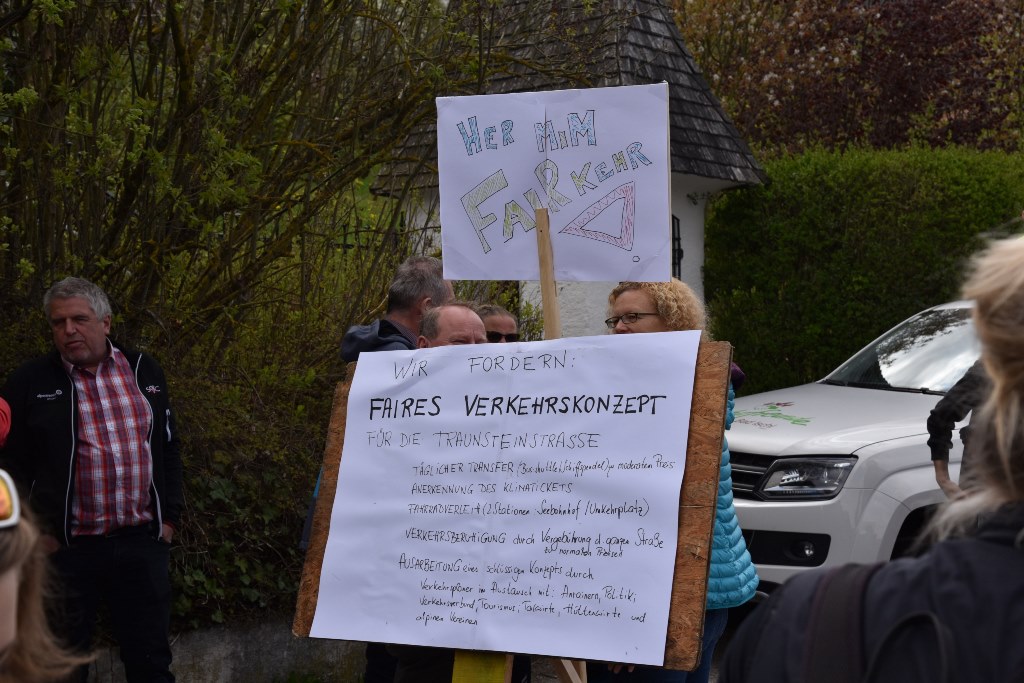 HER MIM
FAIRKEHR
WIR FORDERN:
FAIRES VERKEHRSKONZEPT
FÜR DIE TRAUNSTEINSTRASSE
TÄGLICHER TRANSFER moderatem Preis
ANERKENNUNG DES KLIMATICKETS
FAHRRADVERLEIH (2 Stationen: Seebahnhof / Umkehrplatz)
VERKEHRSBERUHIGUNG durch Vergebührung d. ganzen Straße
zu normalen Preisen
AUSARBEITUNG eines schlüssigen Konzepts durch
Verkehrsplaner im Austausch mit: Anrainern, Politik,
Verkehrsverbund, Tourismus, Taxiwirte, Hüttenwirte und
alpinen Vereinen